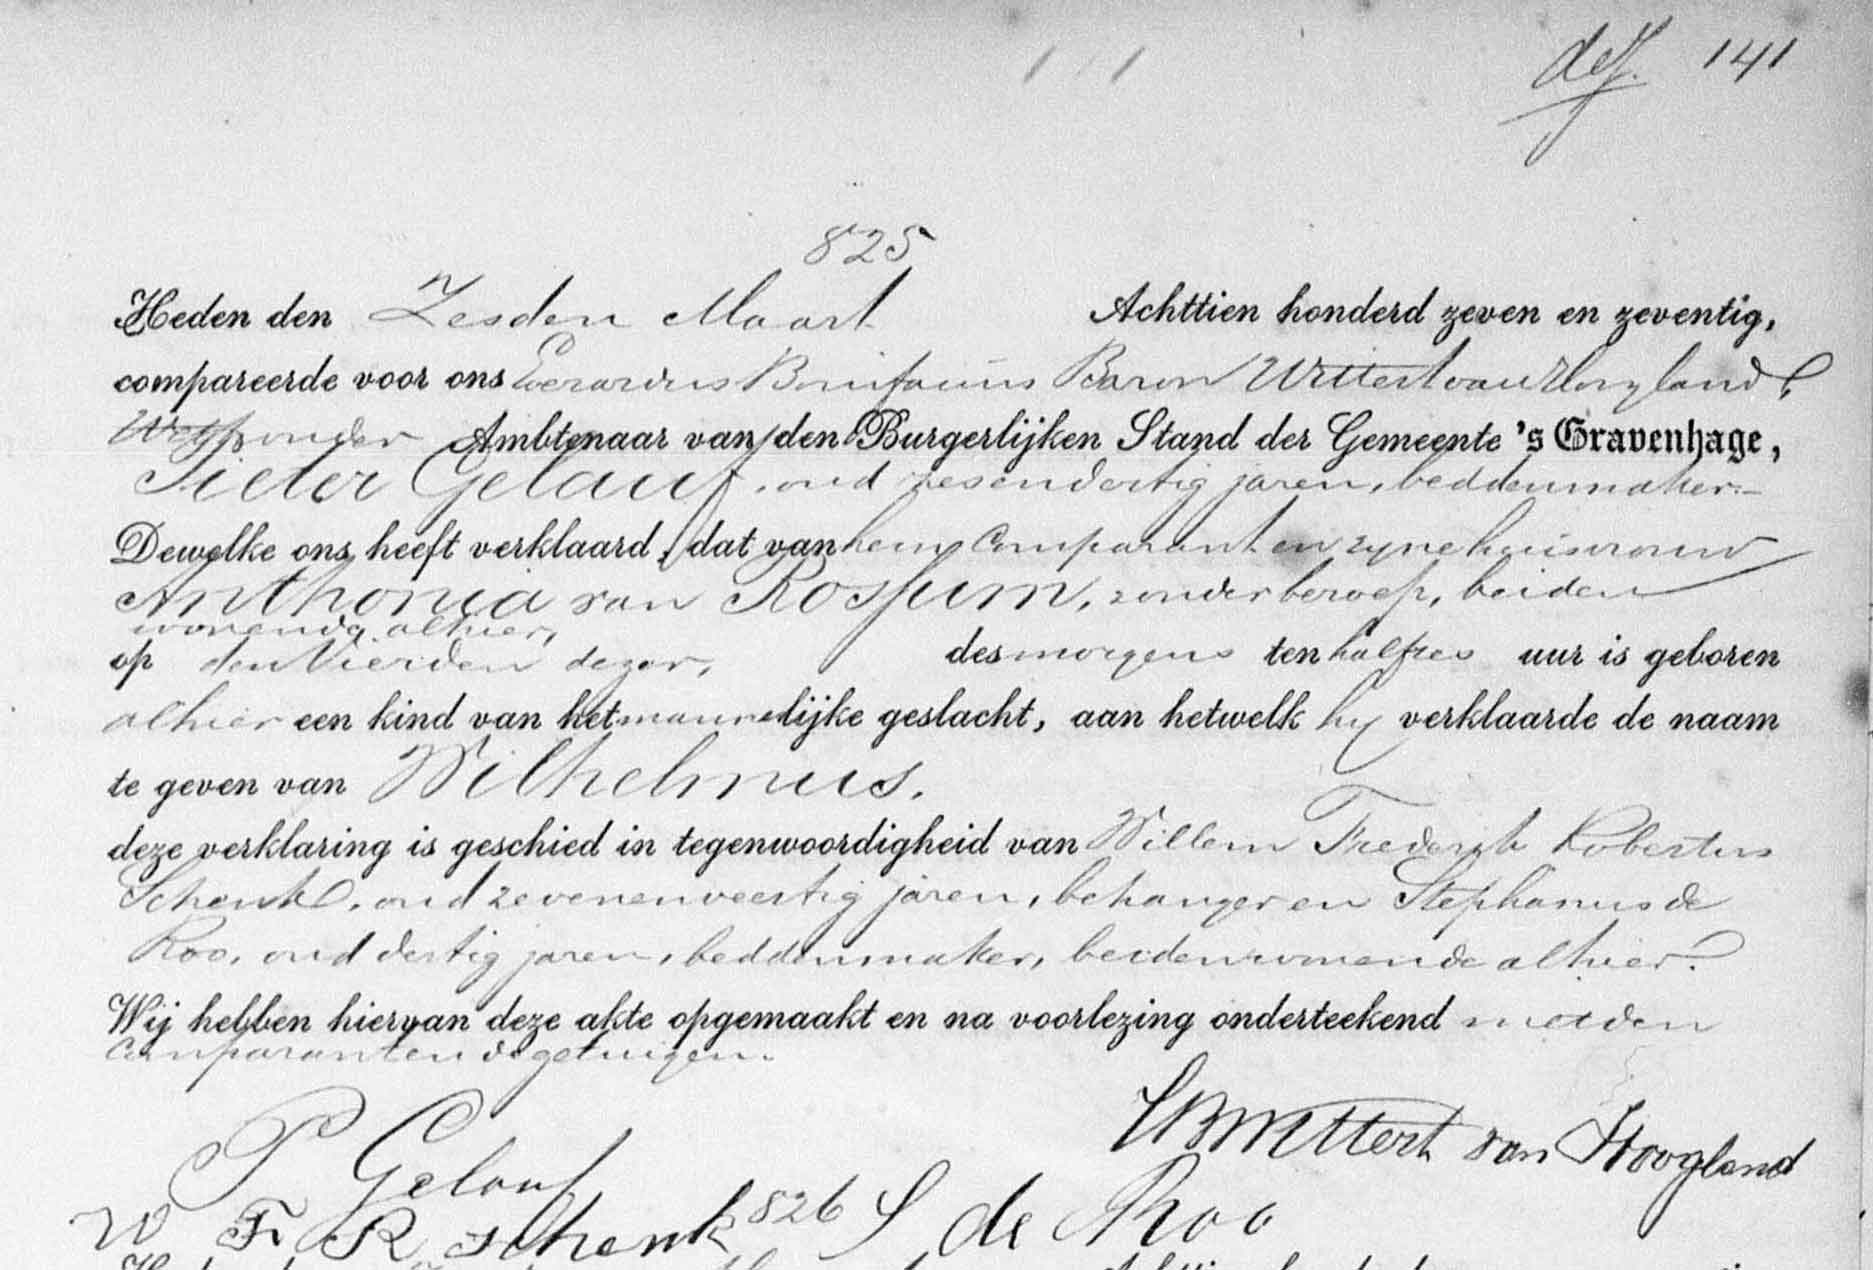 141
825
Heden den Zesden Maart Achttien honderd zeven en zeventig,
compareerde voor ons Everardus Bonifacius Baron Wittert van Hoogland,
Wethouder Ambtenaar van den Burgerlijken Stand der Gemeente 's Gravenhage,
Pieter Gelauf, oud zesendertig jaren, beddenmaker
Dewelke ons heeft verklaard, dat van hem Comparant en zyne huisvrouw
Anthonia van Rossum, zonder beroep, beiden
wonende alhier,
op den Vierden dezer, des morgens ten half zes uur is geboren
alhier een kind van het mannelijke geslacht, aan hetwelk hy verklaarde de naam
te geven van Wilhelmus.
deze verklaring is geschied in tegenwoordigheid van Willem Frederik Robertus
Schenk, oud zevenenveertig jaren, behanger en Stephanus de
Roo, oud dertig jaren, beddenmaker, beiden wonende alhier.
Wij hebben hiervan deze akte opgemaakt en na voorlezing onderteekend met den
Comparant en de getuigen.
EBWittert van Hoogland
P Gelauf
W F R Schenk 826 S de Roo